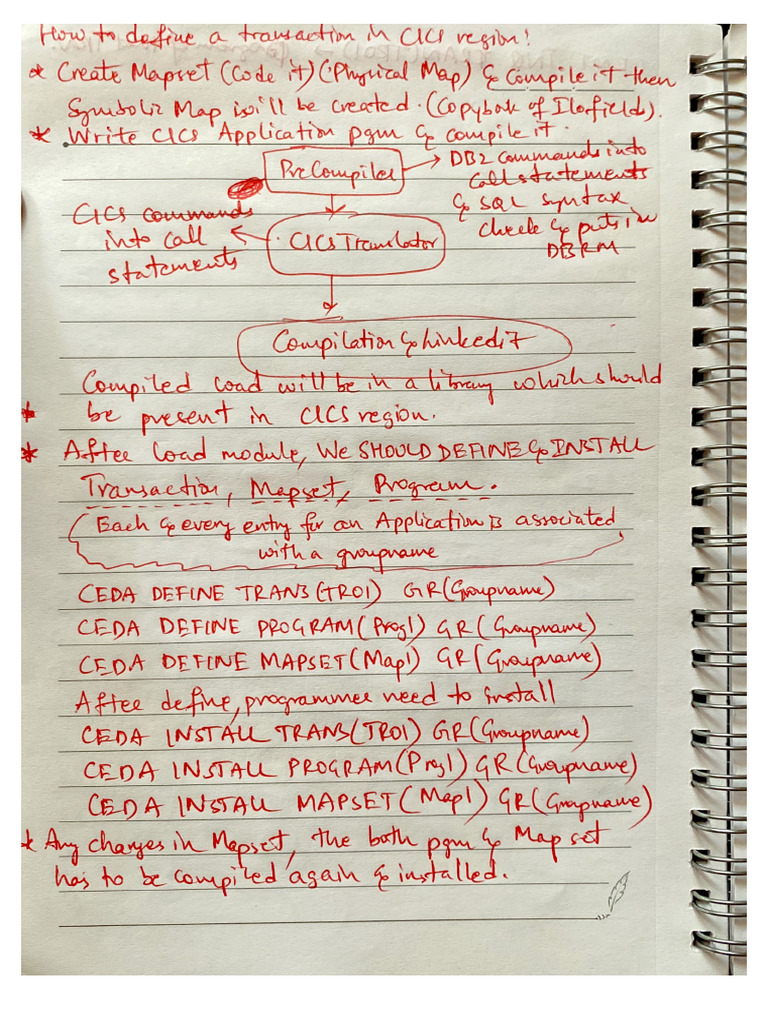 How to define a transaction in CICS region!
* Create Mapset (Code it) (Physical Map) & compile it then
Symbolic Map will be created. (Copybook of IO fields).
* Write CICS Application pgm & compile it.
PreCompiler
DB2 commands into
call statements
& SQL syntax
check & puts in
DBRM
CICS commands
into call
statements
CICS Translator
Compilation & Linkedit
Compiled Load will be in a library which should
* be present in CICS region.
* After load module, We SHOULD DEFINE & INSTALL
Transaction, Mapset, Program.
(Each & every entry for an Application is associated
with a groupname
CEDA DEFINE TRANS(TR01) GR(Groupname)
CEDA DEFINE PROGRAM(Prog1) GR(Groupname)
CEDA DEFINE MAPSET(Map1) GR(Groupname)
After define, programmer need to install
CEDA INSTALL TRANS(TR01) GR(Groupname)
CEDA INSTALL PROGRAM(Prog1) GR(Groupname)
CEDA INSTALL MAPSET(Map1) GR(Groupname)
* Any changes in Mapset, the both pgm & Mapset
has to be compiled again & installed.